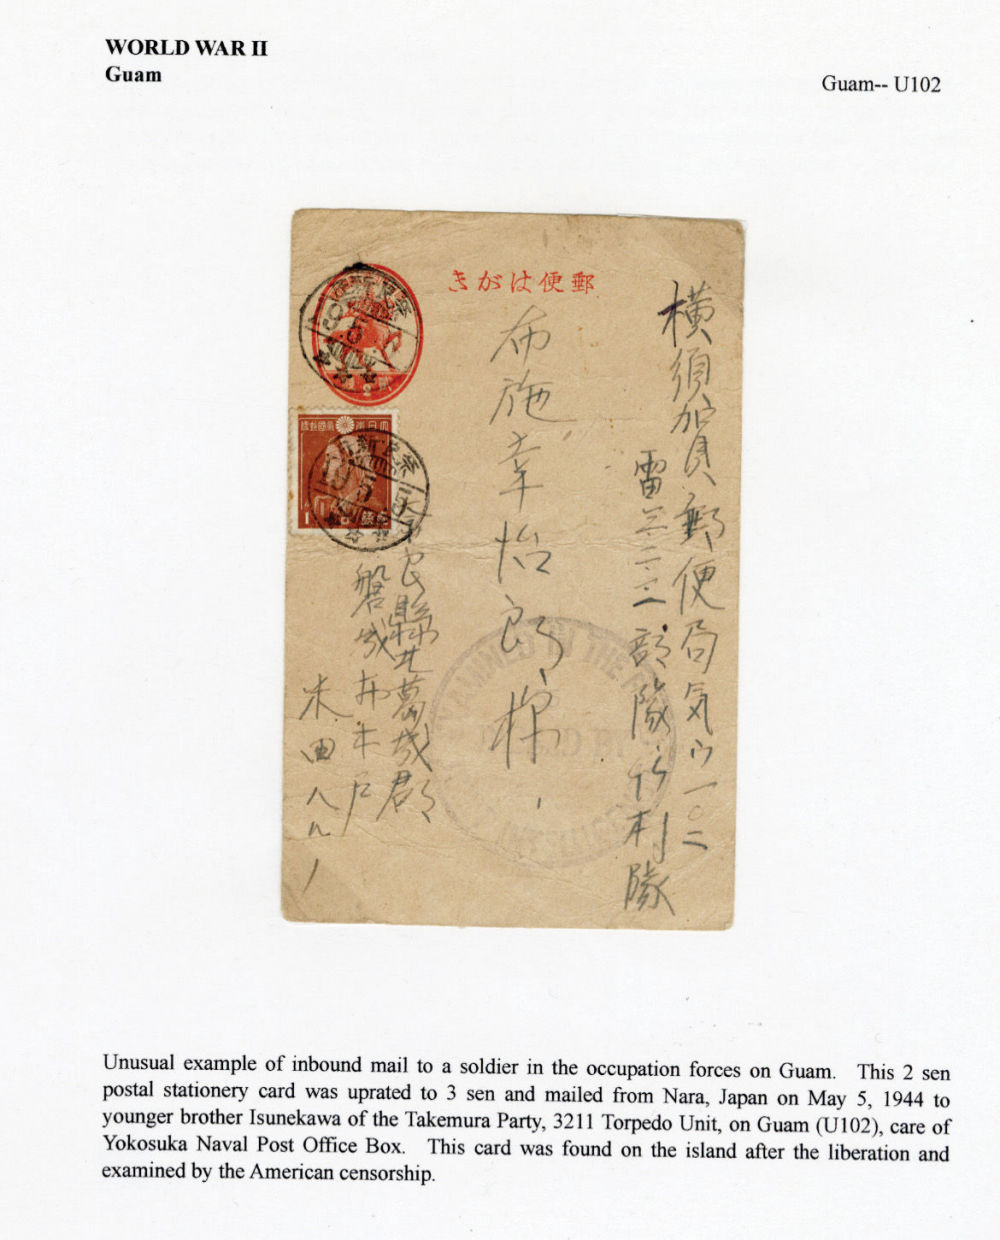 WORLD WAR II
Guam
Guam-- U102
郵便はがき
横須賀郵便局気ウ一〇二
雷三二一一部隊竹村隊
布施幸怡郎様
奈良縣北葛城郡
磐城村木戸
米田
EXAMINED IN THE
INTELLIGENCE
Unusual example of inbound mail to a soldier in the occupation forces on Guam. This 2 sen
postal stationery card was uprated to 3 sen and mailed from Nara, Japan on May 5, 1944 to
younger brother Isunekawa of the Takemura Party, 3211 Torpedo Unit, on Guam (U102), care of
Yokosuka Naval Post Office Box. This card was found on the island after the liberation and
examined by the American censorship.